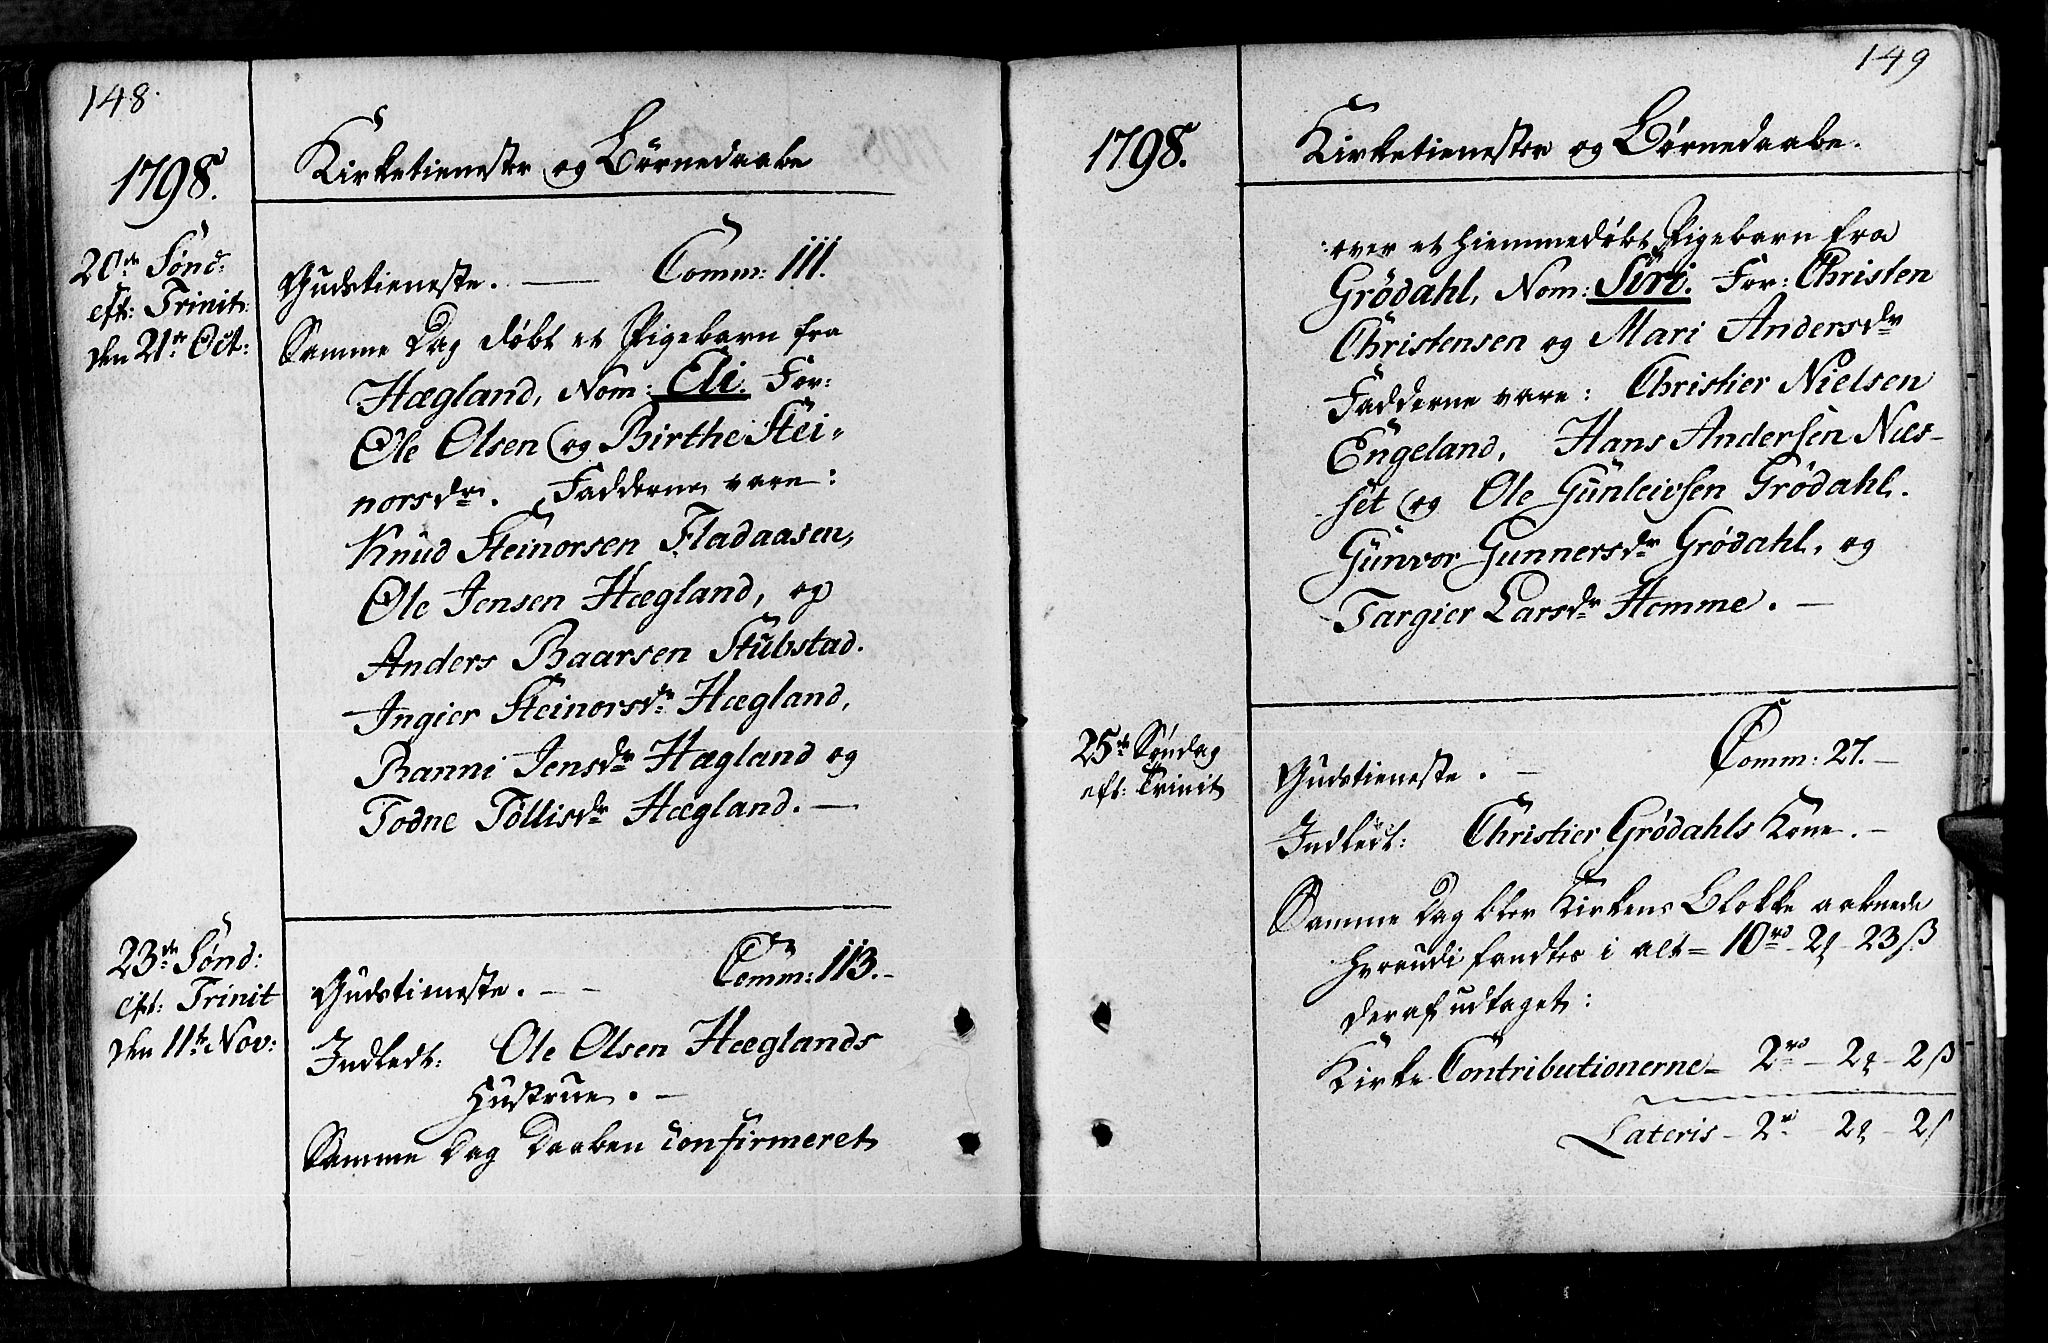 148.
1798.
Kirketienester og Börnedaabe
20de Sönd:
eft: Trinit:
den 21de Oct:
Gudstieneste. — Comm: 111.
Samme Dag döbt et Pigebarn fra
Hægland, Nom: Eli. For:
Ole Olsen og Birthe Stei-
norsdr. Fadderne vare:
Knud Steinorsen Fladaasen,
Ole Jensen Hægland, og
Anders Baarsen Stubstad.
Ingier Steinorsdr Hægland,
Ranni Jensdr Hægland og
Todne Töllisdr Hægland. —
23de Sönd:
eft: Trinit
den 11te Nov:
Gudstieneste. — — Comm: 113. —
Indledt: Ole Olsen Hæglands
Hustrue. —
Samme Dag Daaben confirmeret
149
1798.
Kirketienester og Börnedaabe.
over et hiemmedöbt Pigebarn fra
Grödahl, Nom: Siri. For: Christen
Christensen og Mari Andersdr
Fadderne vare: Christier Nielsen
Engeland, Hans Andersen Næs-
set og Ole Günleivsen Grödahl.
Günvor Gunnersdr Grödahl, og
Targier Larsdr Homme. —
25de Söndag
eft: Trinit
Gudstieneste. — Comm: 27. —
Indledt: Christier Grödahls Kone. —
Samme Dag blev Kirkens Blokke aabnede
hvorudi fandtes i alt = 10 rd - 2 - 23 ß
deraf udtaget:
Kirke Contributionerne - 2 rd - 2 - 2 ß
Lateris - 2 rd - 2 - 2 ß